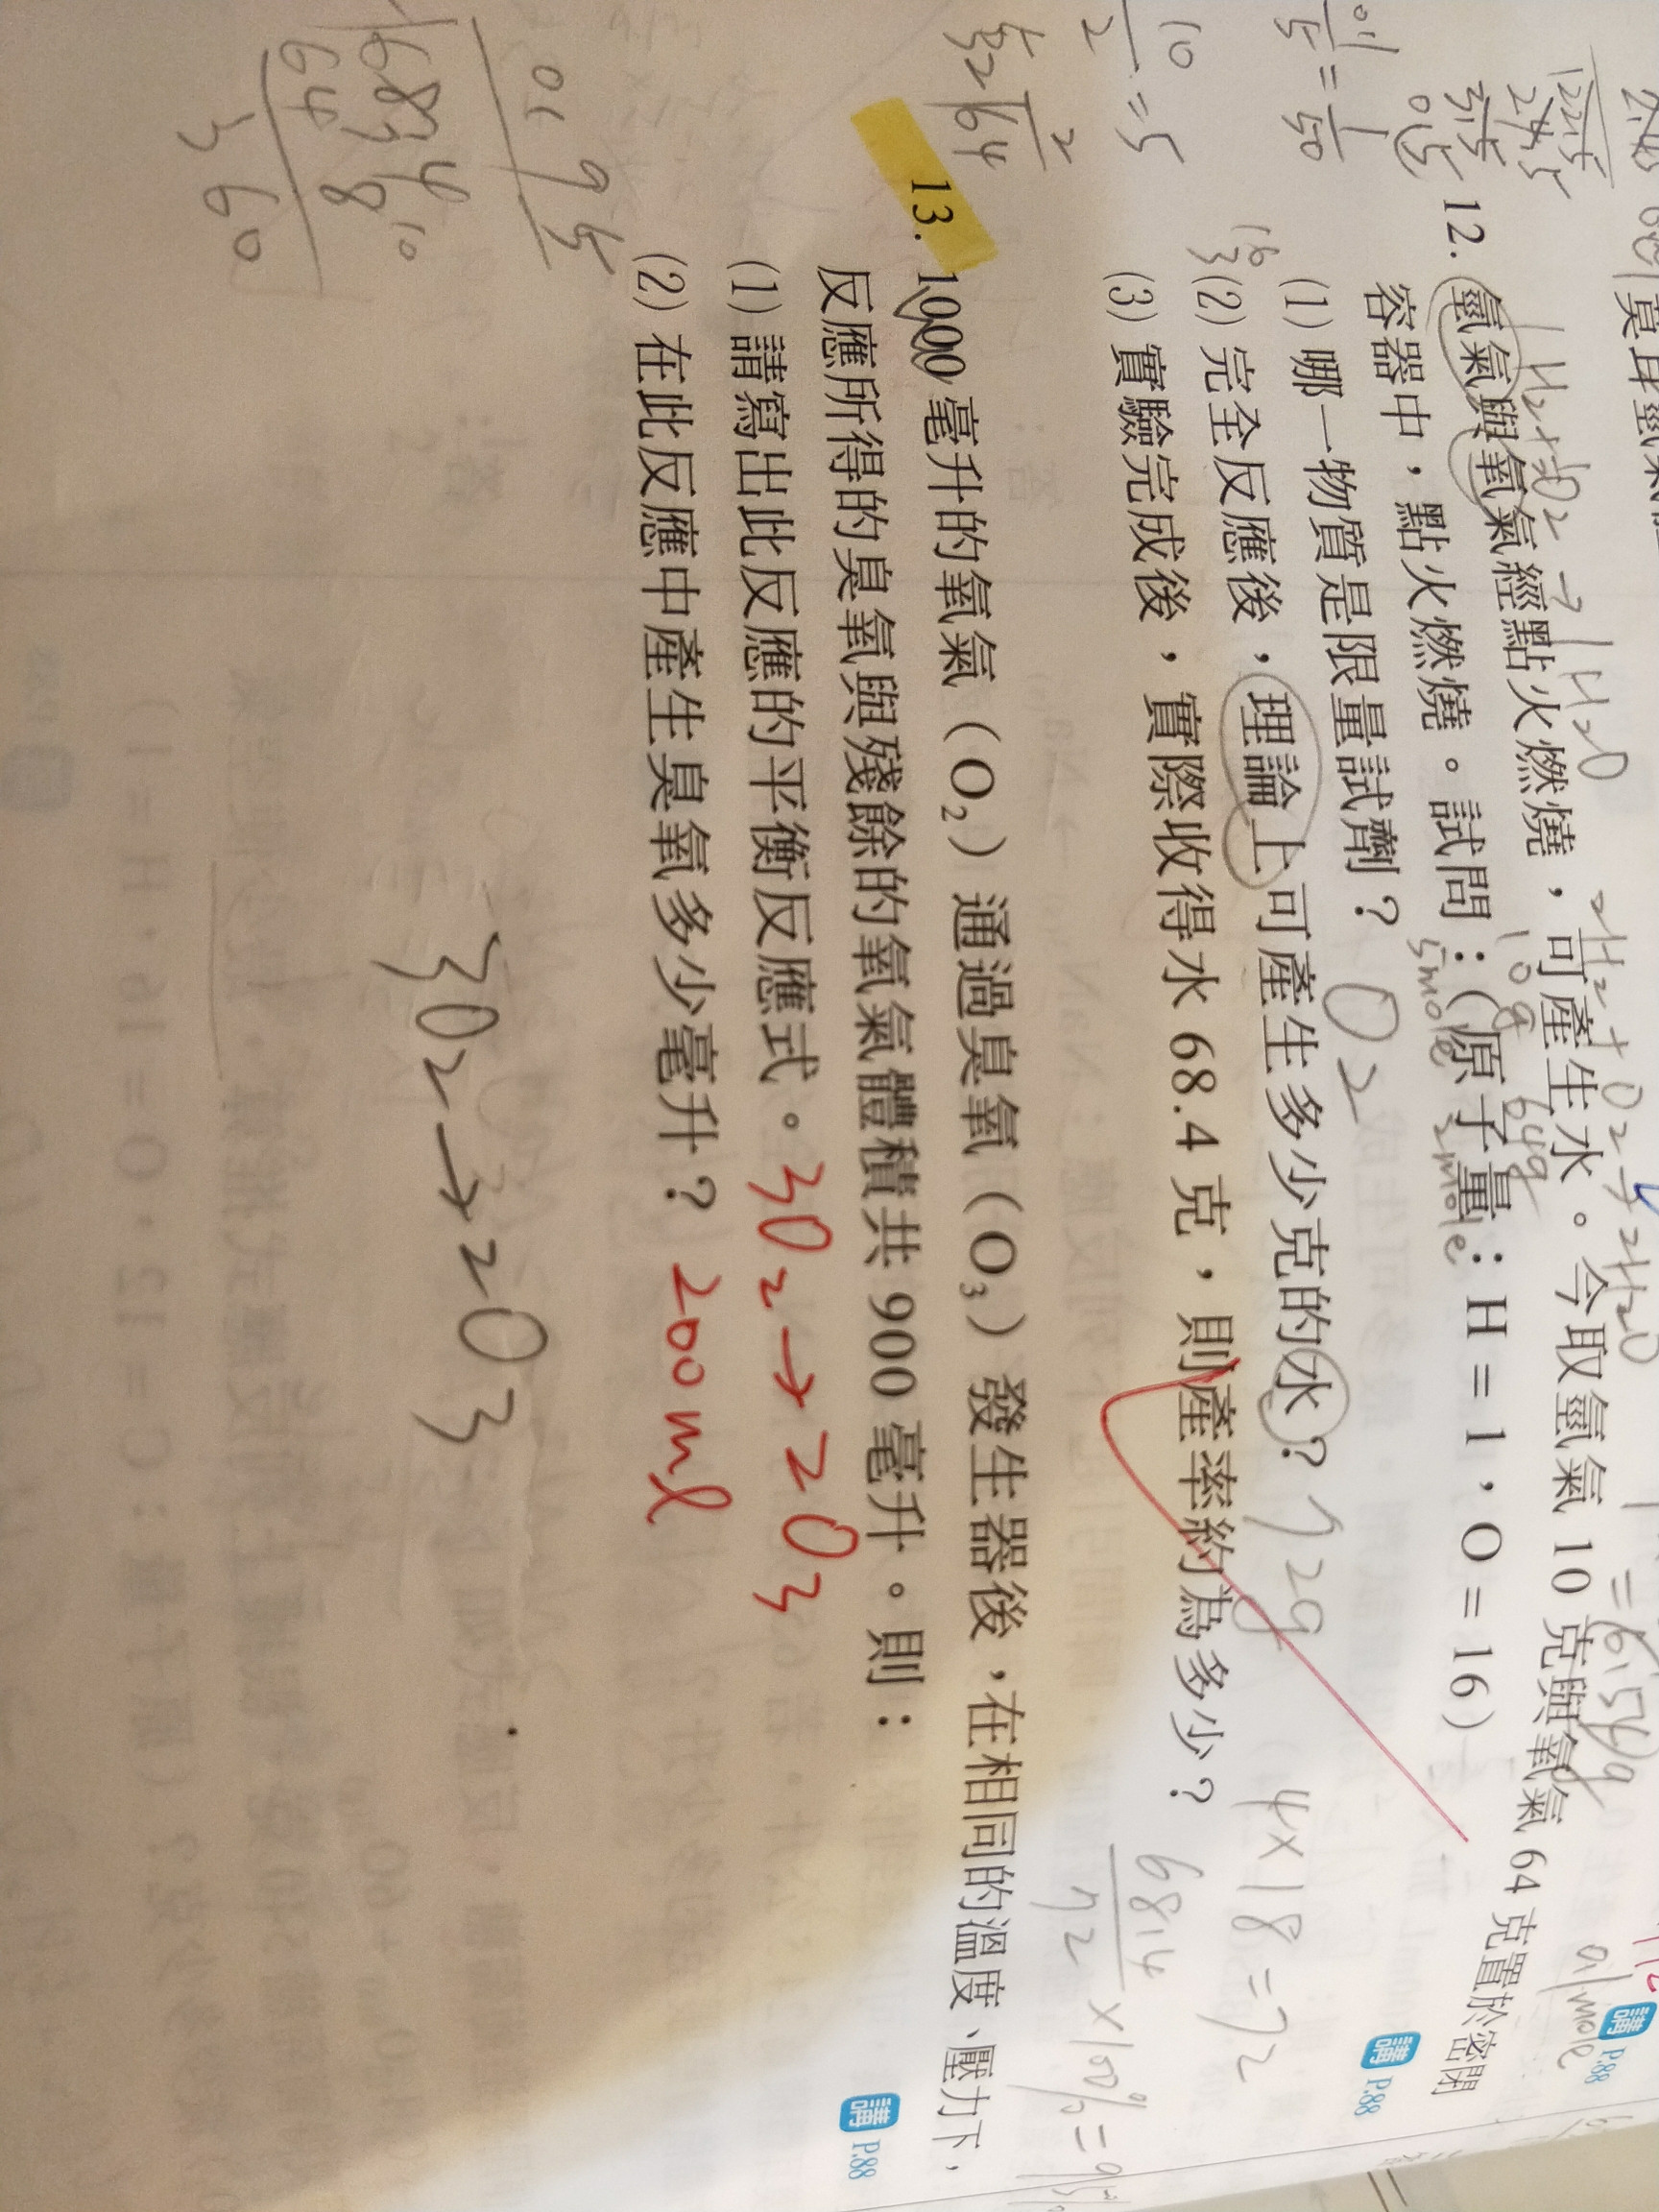 H₂+½O₂→H₂O
2H₂+O₂→2H₂O
12. 氫氣與氧氣經點火燃燒，可產生水。今取氫氣 10 克與氧氣 64 克置於密閉
10g 64g
5mole 2mole
容器中，點火燃燒。試問：（原子量：H＝1，O＝16） 講 P.88
(1) 哪一物質是限量試劑？ O2
(2) 完全反應後，理論上可產生多少克的水？ 72g 4×18=72
(3) 實驗完成後，實際收得水 68.4 克，則產率約為多少？
13. 1000 毫升的氧氣（O₂）通過臭氧（O₃）發生器後，在相同的溫度、壓力下，
反應所得的臭氧與殘餘的氧氣氣體體積共 900 毫升。則： 講 P.88
(1) 請寫出此反應的平衡反應式。 3O2→2O3
(2) 在此反應中產生臭氧多少毫升？ 200ml
3O2→2O3